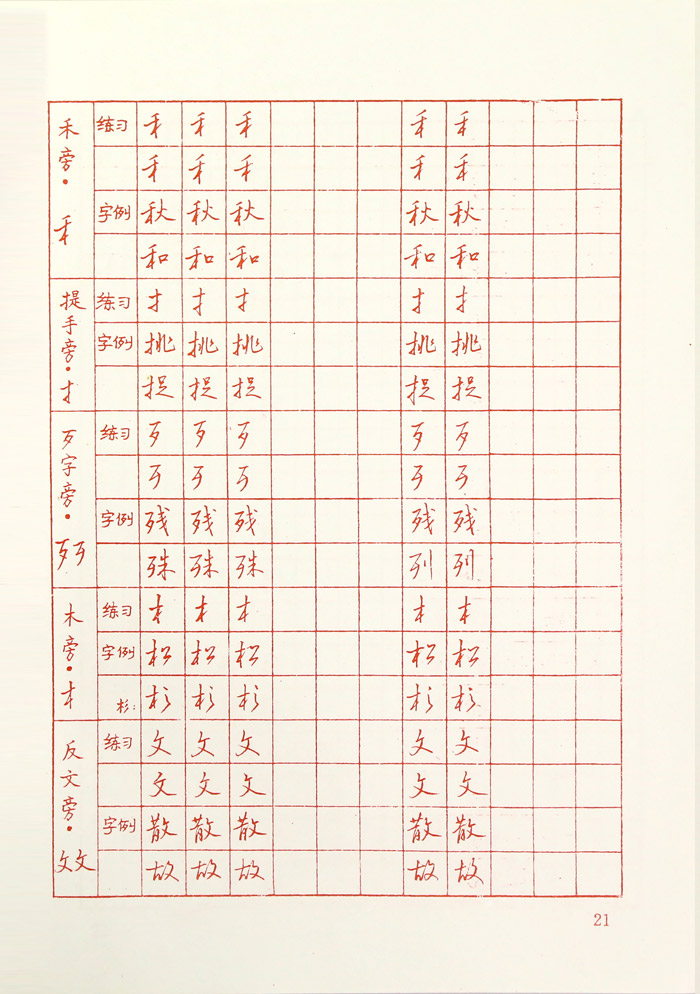 禾旁·禾
练习 禾 禾 禾 禾 禾
禾 禾 禾 禾 禾
字例 秋 秋 秋 秋 秋
和 和 和 和 和
提手旁·扌
练习 扌 扌 扌 扌 扌
字例 挑 挑 挑 挑 挑
捉 捉 捉 捉 捉
歹字旁·歹歹
练习 歹 歹 歹 歹 歹
歹 歹 歹 歹 歹
字例 残 残 残 残 残
殊 殊 殊 列 列
木旁·木
练习 木 木 木 木 木
字例 松 松 松 松 松
杉: 杉 杉 杉 杉 杉
反文旁·攵攵
练习 攵 攵 攵 攵 攵
攵 攵 攵 攵 攵
字例 散 散 散 散 散
故 故 故 故 故
21